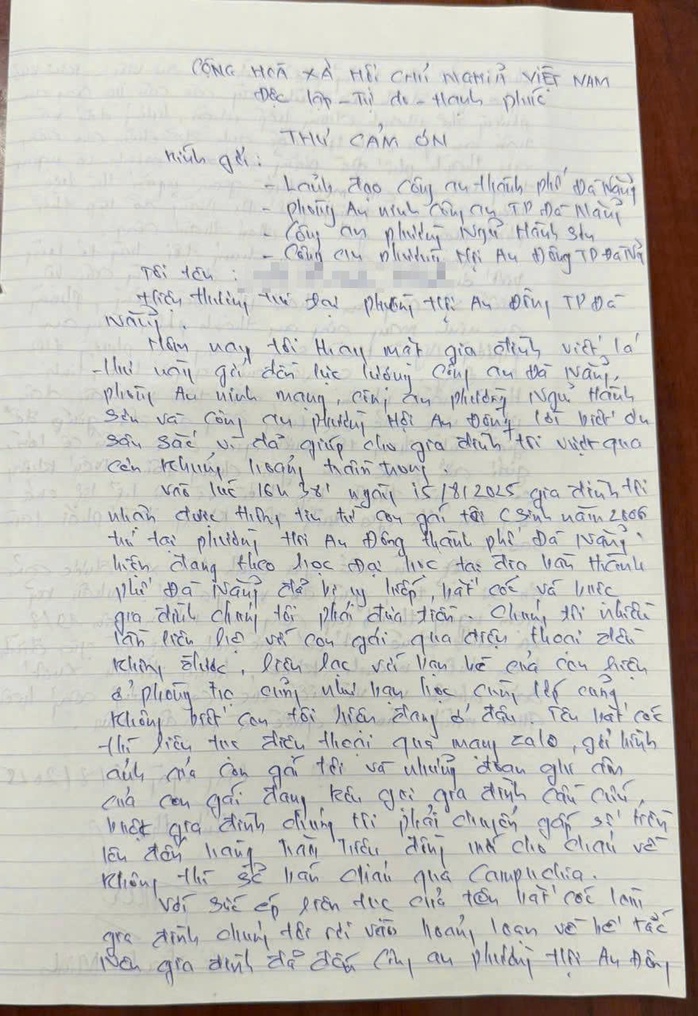 CỘNG HOÀ XÃ HỘI CHỦ NGHĨA VIỆT NAM
Độc lập - Tự do - Hạnh phúc
THƯ CẢM ƠN
Kính gởi:
- Lãnh đạo công an thành phố Đà Nẵng
- phòng An ninh Công an TP Đà Nẵng
- Công an phường Ngũ Hành Sơn
- Công an phường Hội An Đông TP Đà Nẵ
Tôi tên :
Hiện thường trú tại phường Hội An Đông TP Đà
Nẵng.
Hôm nay tôi thay mặt gia đình viết lá
thư này gởi đến lực lượng công an Đà Nẵng,
phòng An ninh mạng, công an phường Ngũ Hành
Sơn và công an phường Hội An Đông lời biết ơn
sâu sắc vì đã giúp cho gia đình tôi vượt qua
cơn khủng hoảng trầm trọng
vào lúc 16h 38' ngày 15/8/2025 gia đình tôi
nhận được thông tin từ con gái tôi (sinh năm 2006
trú tại phường Hội An Đông thành phố Đà Nẵng.
hiện đang theo học Đại học tại địa bàn thành
phố Đà Nẵng đã bị uy hiếp, bắt cóc và buộc
gia đình chúng tôi phải đưa tiền. Chúng tôi nhiều
lần liên hệ với con gái qua điện thoại đều
không được, liên lạc với bạn bè của con hiện
ở phòng trọ cũng như bạn học cùng lớp cũng
không biết con tôi hiện đang ở đâu. Tên bắt cóc
thì liên tục điện thoại qua mạng zalo, gởi hình
ảnh của con gái tôi và những đoạn ghi âm
của con gái đang kêu gọi gia đình cầu cứu,
buộc gia đình chúng tôi phải chuyển gấp số tiền
lên đến hàng trăm triệu đồng mới cho cháu về
không thì sẽ bán cháu qua Campuchia.
Với sức ép liên tục của tên bắt cóc làm
gia đình chúng tôi rơi vào hoảng loạn và bế tắc
nên gia đình đã đến công an phường Hội An Đông